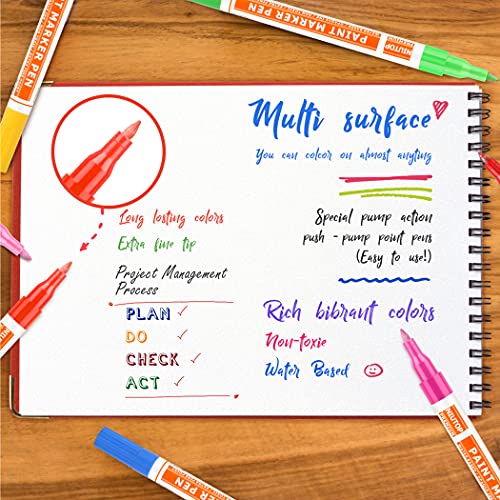 PAINT MARKER PEN
NIUTOP
PAINT MARKER PEN
Multi surface
You can coleor on almost anyting
Long lasting colors
Extra fine tip
Special pump action
push - pump point pens
(Easy to use!)
Project Management
Process
PLAN ✓
DO ✓
CHECK ✓
ACT ✓
Rich bibrant colors
Non-toxie
Water Based
NIUTOP
PAINT MAR
MARKER PEN